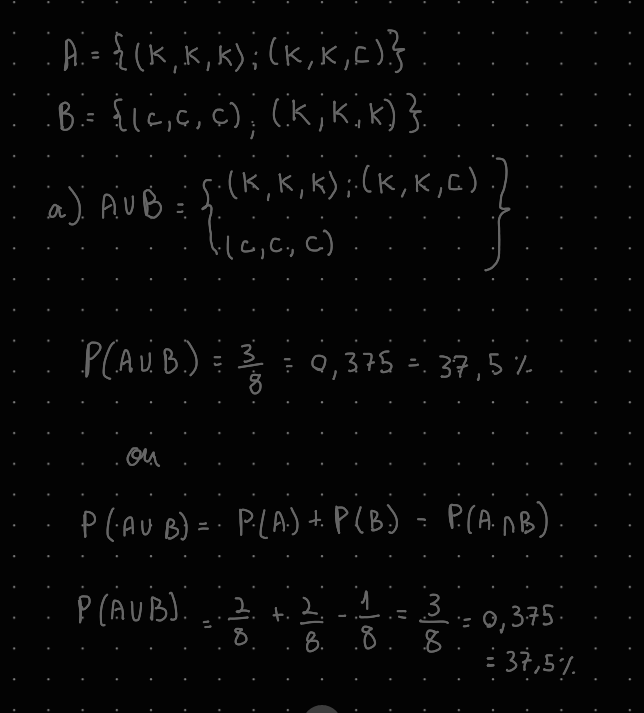 A = {(K, K, K); (K, K, C)}
B = {(C, C, C); (K, K, K)}
a) A∪B = {(K, K, K); (K, K, C)
(C, C, C)}
P(A∪B) = 3/8 = 0,375 = 37,5 %
ou
P(A∪B) = P(A) + P(B) - P(A∩B)
P(A∪B) = 2/8 + 2/8 - 1/8 = 3/8 = 0,375
= 37,5%